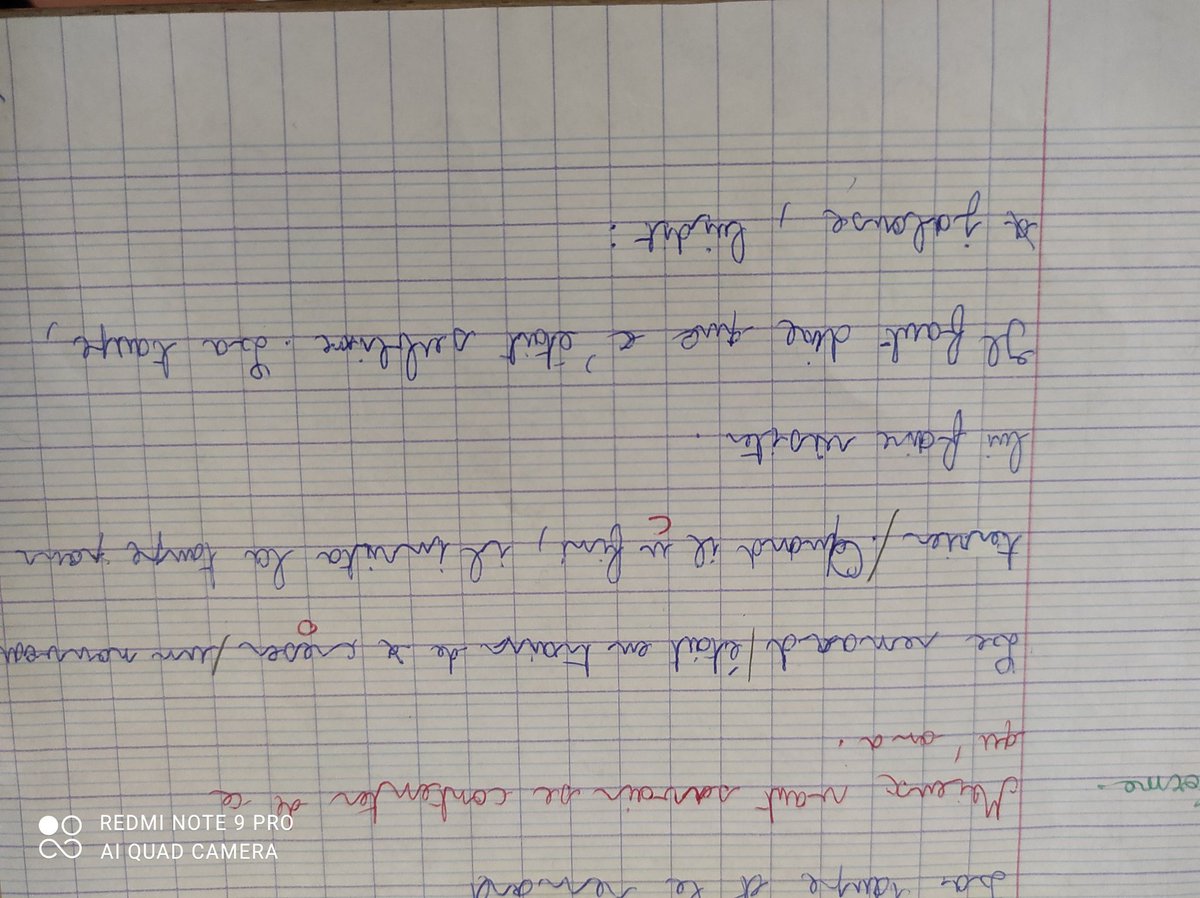 La taupe et le renard
Mieux vaut savoir se contenter de ce
qu'on a.
Le renard / était en train de creser / un nouveau
terrier / Quand il finit, il invita la taupe pour
lui faire visiter.
Il faut dire que c'était sublime. La taupe,
jalouse, luidit :
REDMI NOTE 9 PRO
AI QUAD CAMERA